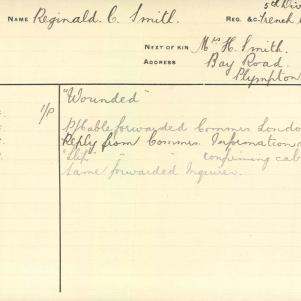 5th Div
NAME Reginald. C. Smith. REG. &c. French
NEXT OF KIN Mrs H. Smith.
ADDRESS Bay Road.
Plympton
"Wounded"
1/P P/P Cable forwarded Commrs London
Reply from Commrs. Information
"Slip" - " - confirming cab
Same forwarded Inquirer.